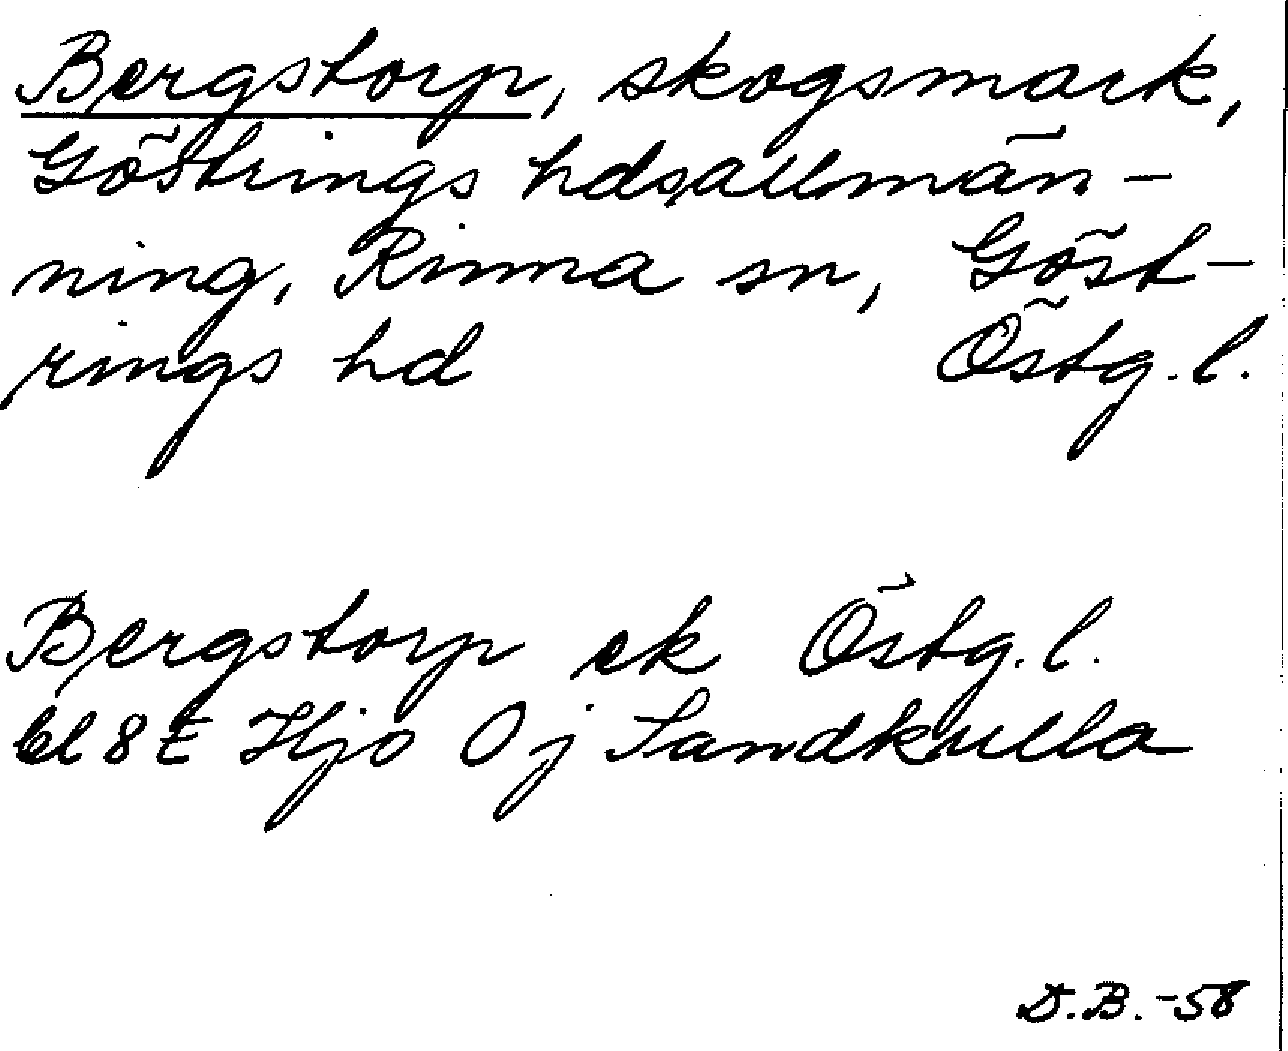 Bergstorp, skogsmark,
Göstrings hdsallmän-
ning, Rinna sn, Göst-
rings hd Östg. l.
Bergstorp ek Östg. l.
bl 8 E Hjo Oj Sandkulla
D.B. -58